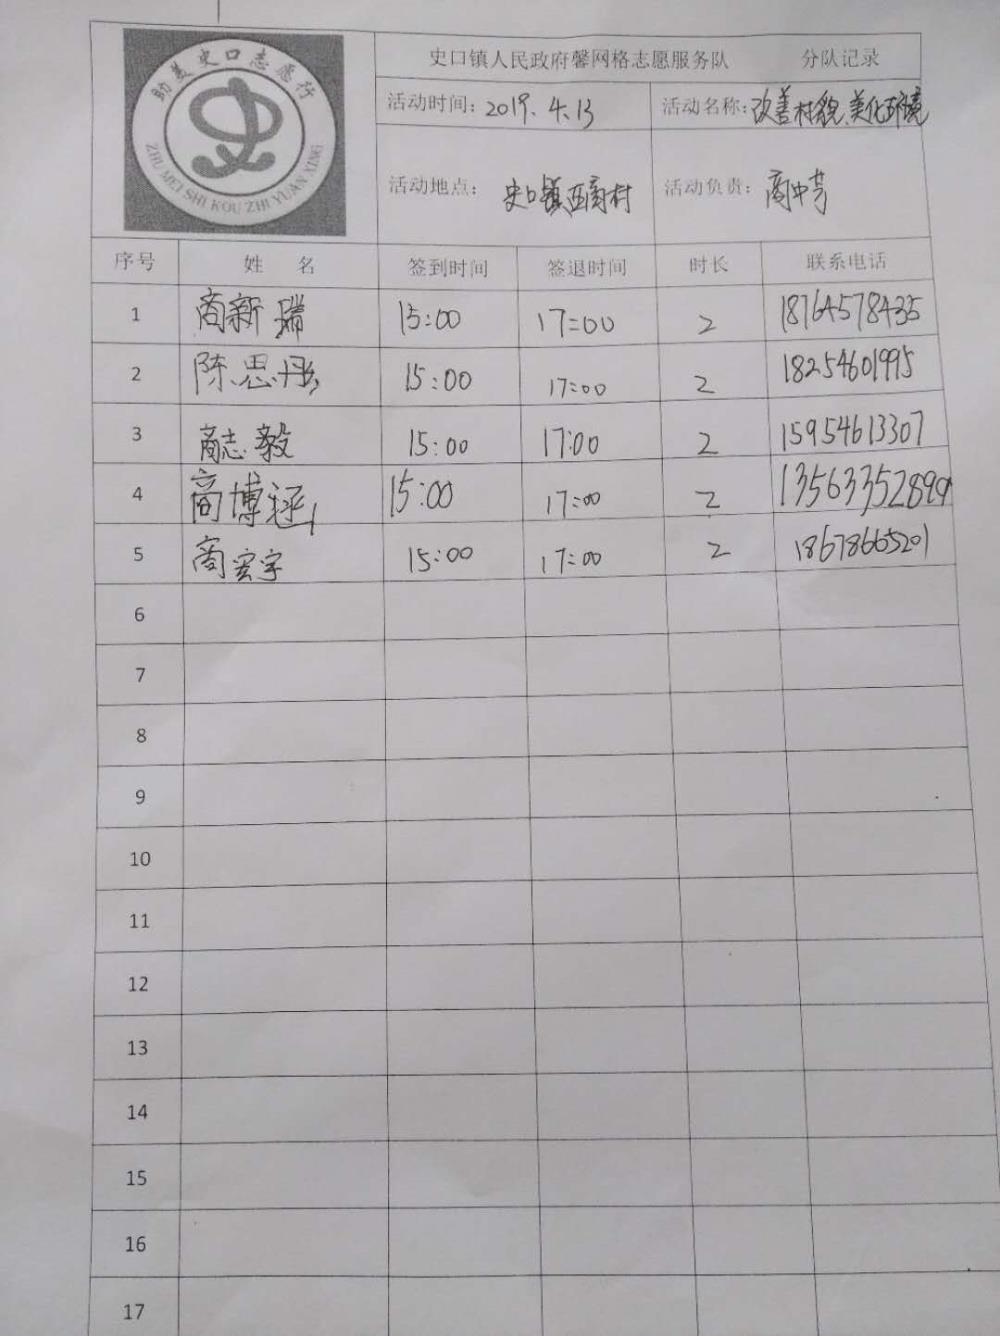 助美史口志愿行
ZHU MEI SHI KOU ZHI YUAN XING
史口镇人民政府馨网格志愿服务队 分队记录
活动时间：2019.4.13 活动名称：改善村貌、美化环境
活动地点：史口镇西商村 活动负责：商中芳
序号 姓 名 签到时间 签退时间 时长 联系电话
1 商新瑞 15:00 17:00 2 18764578435
2 陈思彤 15:00 17:00 2 18254601995
3 商志毅 15:00 17:00 2 15954613307
4 商博 15:00 17:00 2 13563352899
5 商宏宇 15:00 17:00 2 18678665201
6
7
8
9
10
11
12
13
14
15
16
17